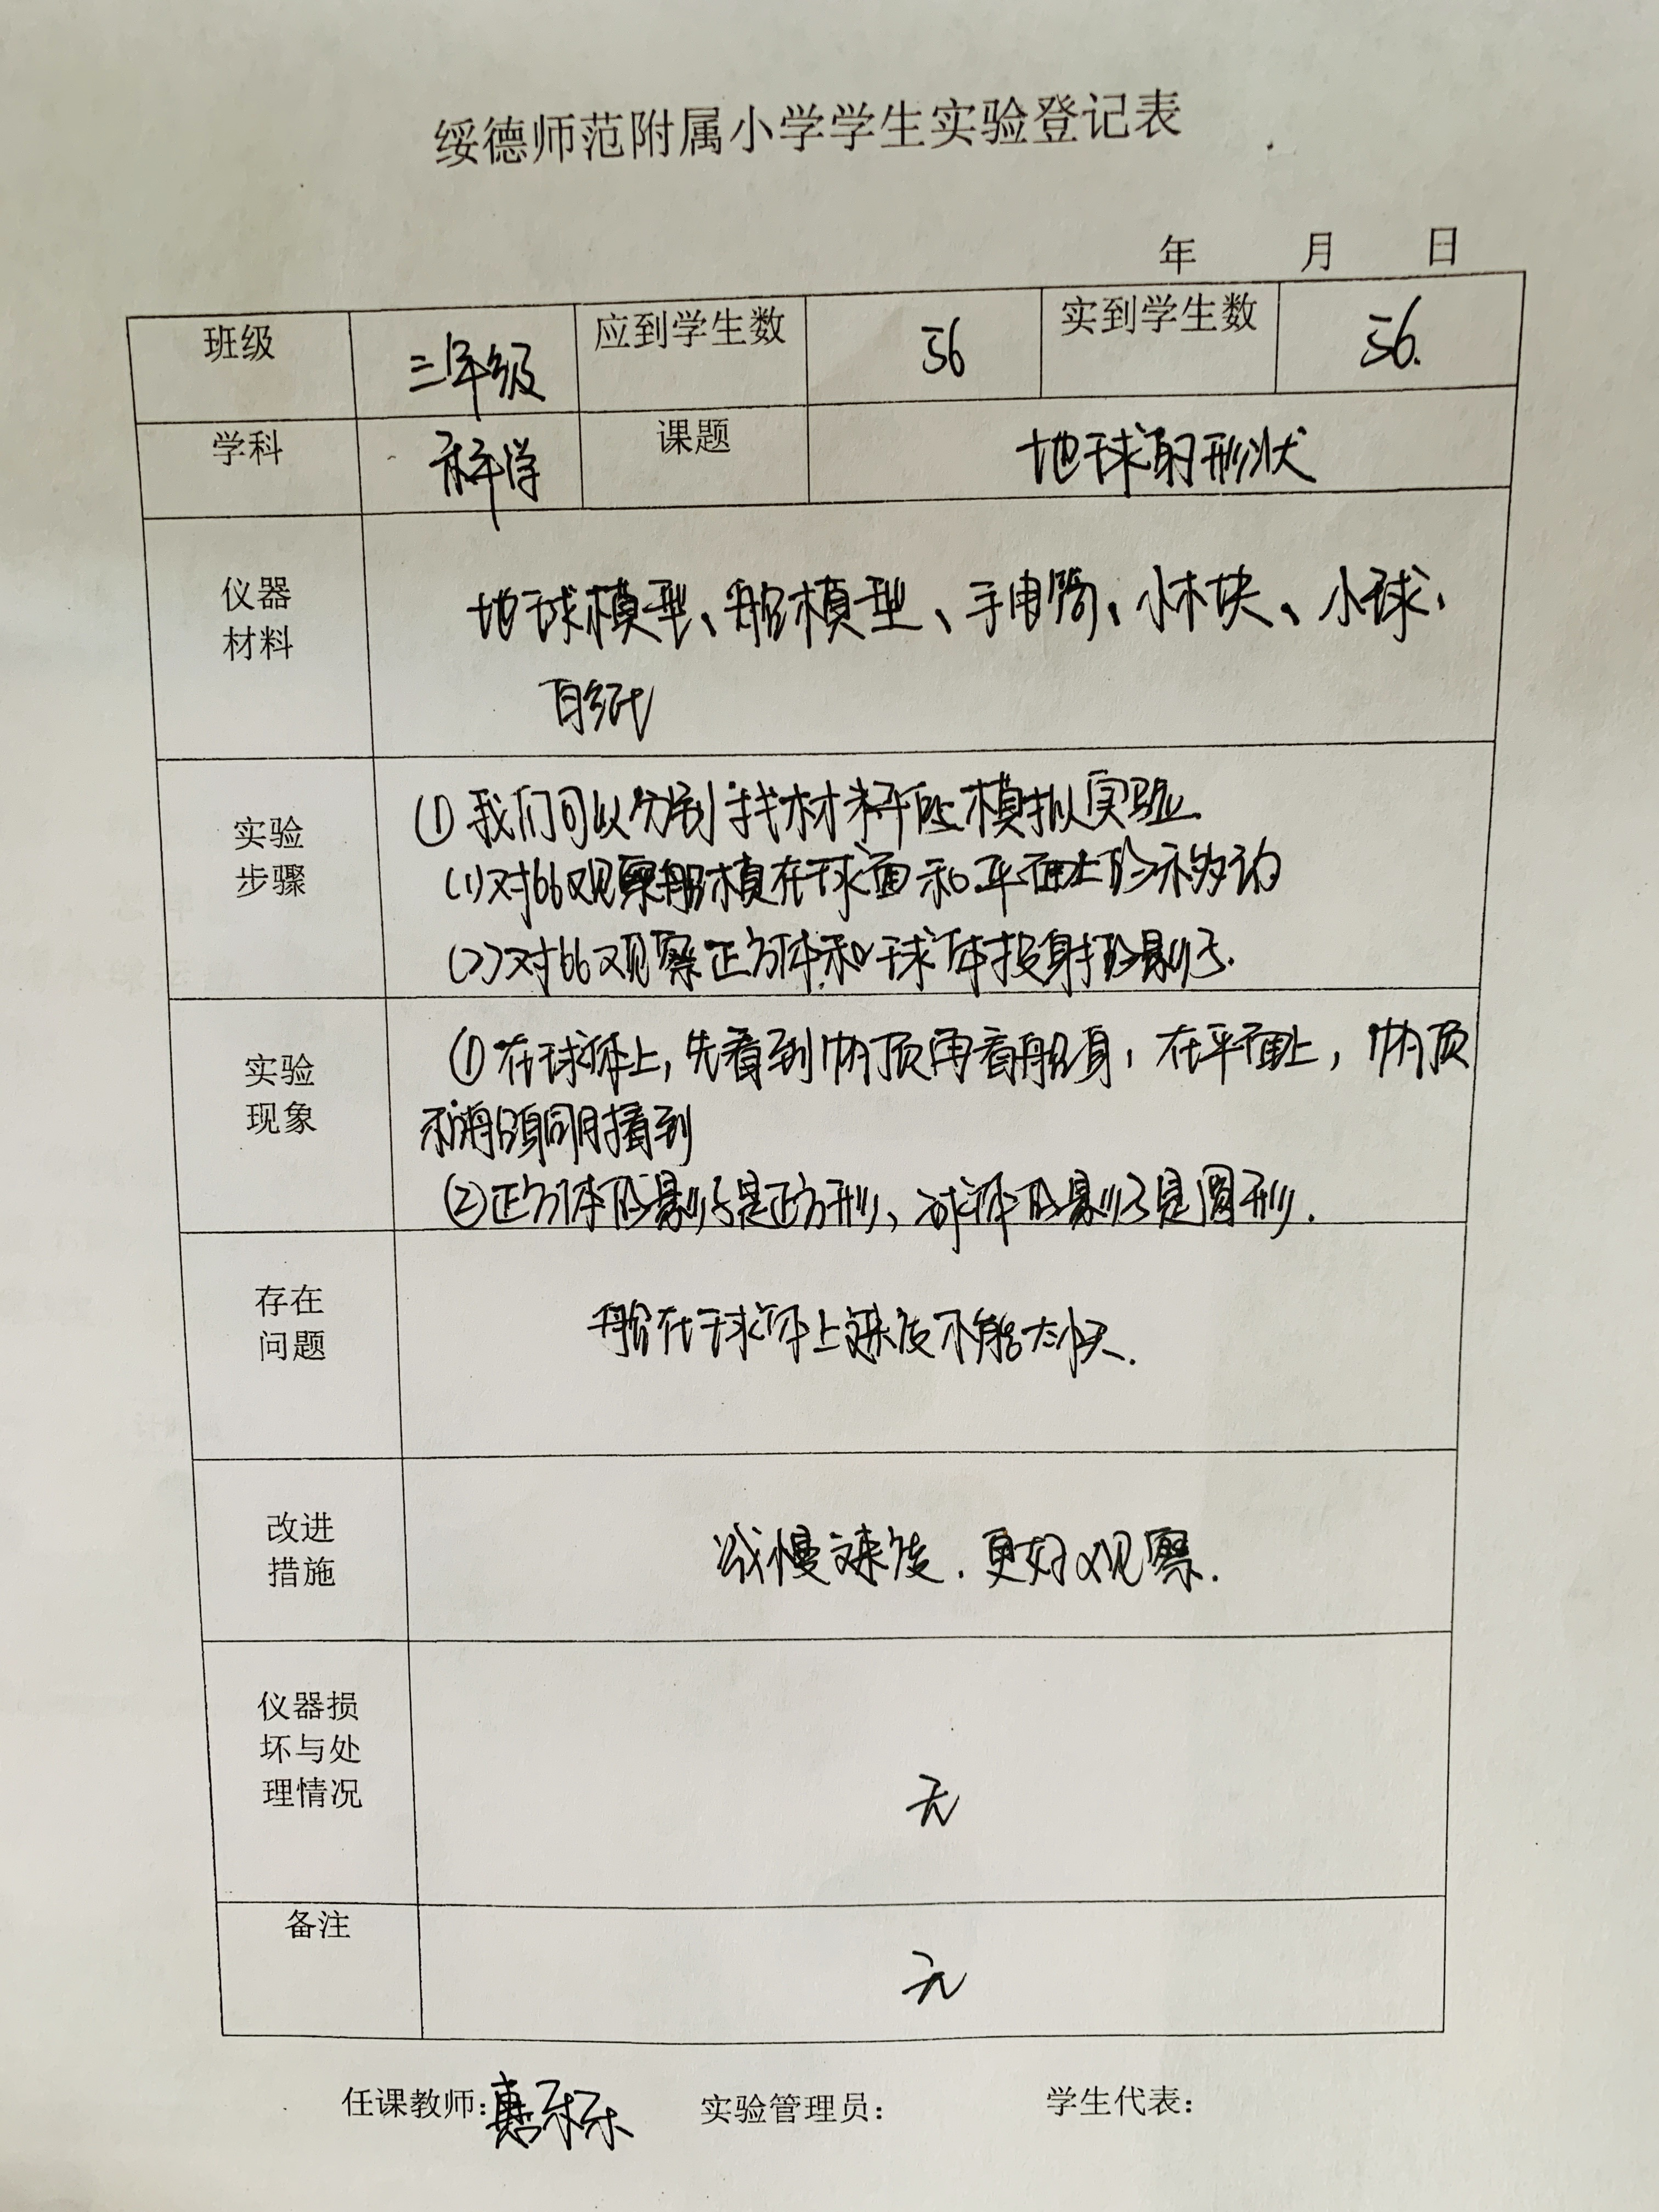 绥德师范附属小学学生实验登记表
年 月 日
班级 三年级 应到学生数 56 实到学生数 56.
学科 科学 课题 地球的形状
仪器
材料
地球模型、船模型、手电筒、小木块、小球、
白纸
实验
步骤
① 我们可以分别找材料做模拟实验
(1)对比观察船模在球面和平面上的移动
(2)对比观察正方体和球体投射的影子.
实验
现象
①在球体上,先看到帆顶再看船身,在平面上,帆顶
和船身同时看到
②正方体的影子是正方形、球体的影子是圆形.
存在
问题
船在球体上速度不能太快.
改进
措施
减慢速度.更好观察.
仪器损
坏与处
理情况
无
备注
无
任课教师: 惠乐乐 实验管理员: 学生代表: